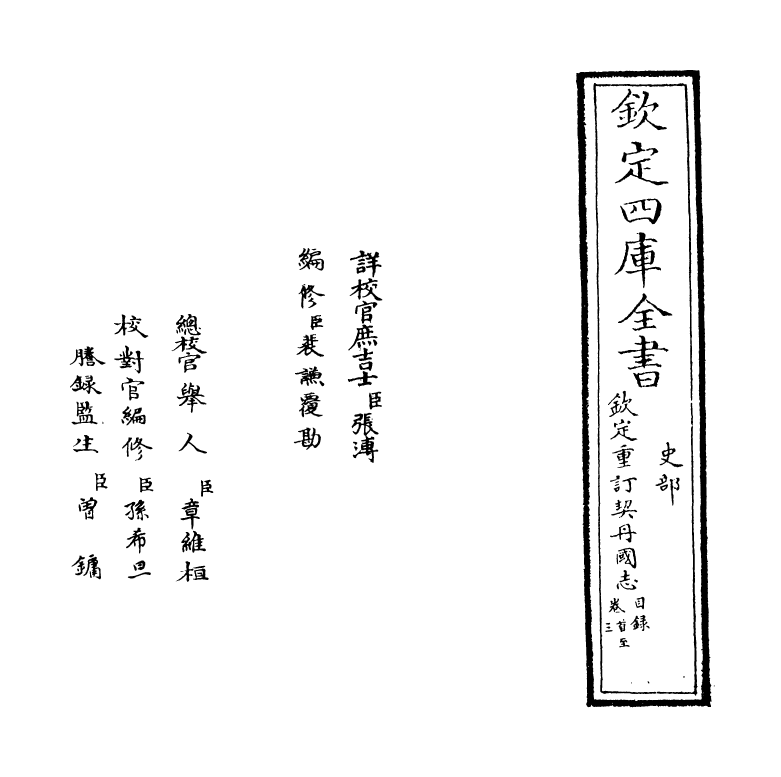 欽定四庫全書
史部
欽定重訂契丹國志
目録
卷首至三
詳校官庶吉士臣張溥
編修臣裴謙覆勘
總校官舉人臣章維桓
校對官編修臣孫希旦
謄録監生臣曾鏞